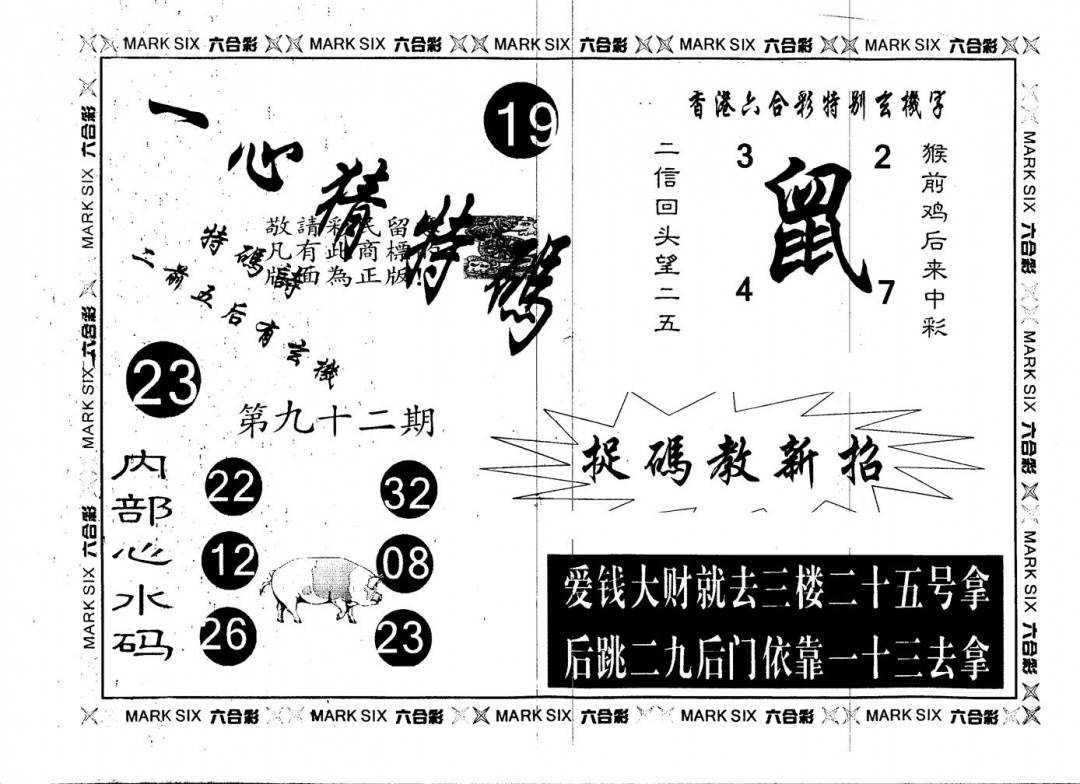 MARK SIX 六合彩 MARK SIX 六合彩 MARK SIX 六合彩 MARK SIX 六合彩 MARK SIX 六合彩
MARK SIX 六合彩
MARK SIX 六合彩
MARK SIX 六合彩
一心猜特碼
19
敬請彩民留
凡有此商標
版面為正版!
特碼詩
二前五后有玄機
23
第九十二期
内部心水码
22
32
12
08
26
23
香港六合彩特别玄機字
二信回头望二五
3
2
鼠
4
7
猴前鸡后来中彩
捉碼教新招
爱钱大财就去三楼二十五号拿
后跳二九后门依靠一十三去拿
MARK SIX 六合彩
MARK SIX 六合彩
MARK SIX 六合彩
MARK SIX 六合彩 MARK SIX 六合彩 MARK SIX 六合彩 MARK SIX 六合彩 MARK SIX 六合彩